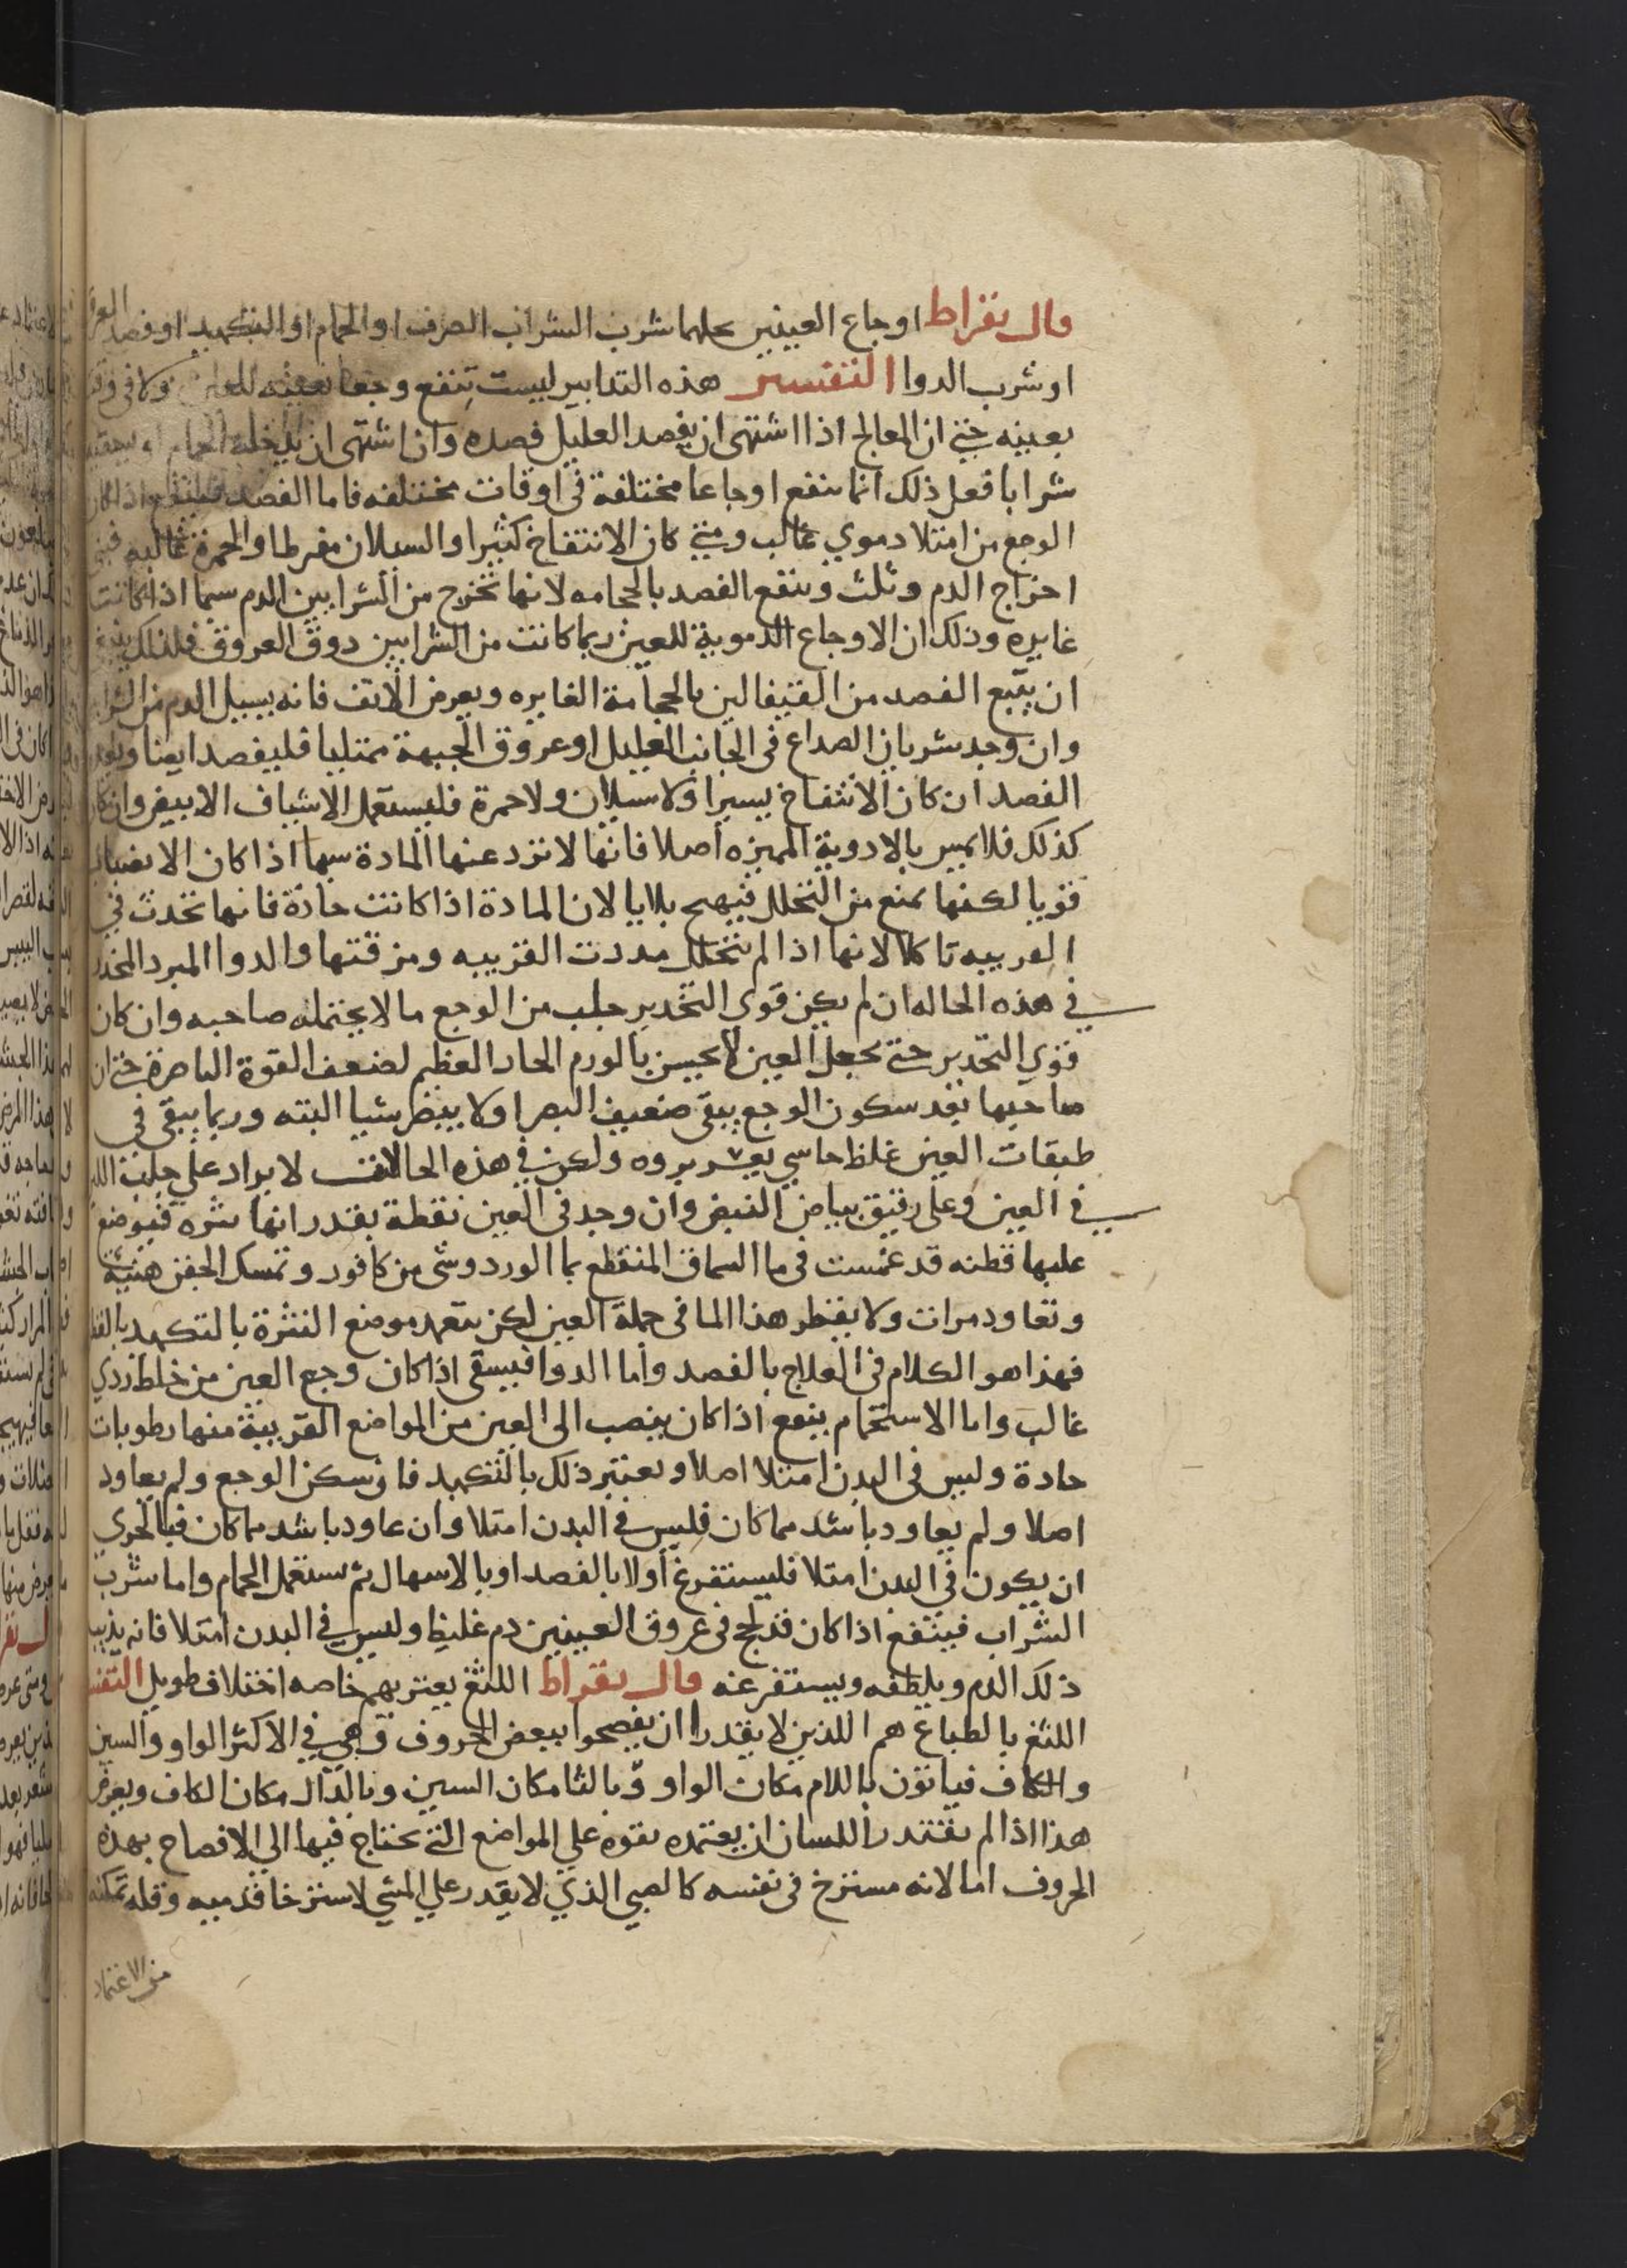 قال بقراط اوجاع العينين يحلها شرب الشراب الصرف او الحمام او التكميد او فصد العرق
او شرب الدوا التفسير هذه التدابير ليست تنفع وجعا بعينه للعين ولا فى وقت
بعينه حتى ان المعالج اذا اشتهى ان يفصد العليل فصده وان اشتهى ان يدخله الحمام او يسقيه
شرابا فعل ذلك انما ينفع اوجاعا مختلفة فى اوقات مختلفه فاما الفصد فينفع اذا كان
الوجع من امتلا دموي غالب ومتى كان الانتفاخ كثيرا والسيلان مفرطا والحمرة غالبه فثنى
اخراج الدم وثلث وينفع الفصد بالحجامه لانها تخرج من الشرايين الدم سيما اذا كانت
غايره وذلك ان الاوجاع الدموية للعين ربما كانت من الشرايين دون العروق فلذلك ينبغي
ان يتبع الفصد من القيفالين بالحجامة الغايره وبعرض الانف فانه يسيل الدم من
وان وجد شريان الصداع فى الجانب العليل او عروق الجبهة ممتليا فليفصد ايضا وبعد
الفصد ان كان الانتفاخ يسيرا ولا سيلان ولا حمرة فليستعمل الاشياف الابيض وان كان
كذلك فلا يمس بالادوية المميزه اصلا فانها لا تزد عنها المادة سيما اذا كان الانصباب
قويا لكنها تمنع من التحلل فيهيج بلايا لان المادة اذا كانت حادة فانها تحدث في
القربيه تاكلا لانها اذا لم تتحلل مددت القربيه ومزقتها والدوا المبرد المخدر
في هذه الحاله ان لم يكن قوي التخدير جلب من الوجع ما لا يحتمله صاحبه وان كان
قوي التخدير حتى يجعل العين لا يحس بالورم الحار العظيم لضعف القوة الباصرة حتى ان
صاحبها بعد سكون الوجع يبقى ضعيف البصر او لا يبصر شيا البته وربما يبقى في
طبقات العين غلظ جاسي يعسر بروه ولكن في هذه الحالات لا يزاد على حلب اللبن
في العين وعلى رقيق بياض البيض وان وجد فى العين نقطة بقدر انها بثره فيوضع
عليها قطنه قد غمست فى ما السماق المنقطع بما الورد وشى من كافور وتمسك الجفن هنيئة
وتعاود مرات ولا يقطر هذا الما فى جملة العين لكن يتعمد موضع البثرة بالتكميد بالقط
فهذا هو الكلام فى العلاج بالفصد واما الدوا فيسقى اذا كان وجع العين من خلط ردي
غالب واما الاستحمام ينفع اذا كان ينصب الى العين من المواضع القريبة منها رطوبات
حادة وليس فى البدن امتلا اصلا ويعتبر ذلك بالتكميد فان سكن الوجع ولم يعاود
اصلا ولم يعاود باشد مما كان فليس في البدن امتلا وان عاود باشد مما كان فبالحري
ان يكون في البدن امتلا فليستفرغ اولا بالفصد او بالاسهال ثم يستعمل الحمام واما شرب
الشراب فينفع اذا كان قد لحج فى عروق العينين دم غليظ وليس في البدن امتلا فانه يذيب
ذلك الدم ويلطفه ويستفرغه قال بقراط اللثغ يعتريهم خاصه اختلاف طويل التفسـ
اللثغ بالطباع هم اللذين لا يقدرا ان يفصحوا ببعض الحروف وهي في الاكثر الواو والسين
والكاف فياتون باللام مكان الواو وبالثا مكان السين وبالدال مكان الكاف ويعرض
هذا اذا لم يقتدر اللسان ان يعتمده بقوه علي المواضع التي تحتاج فيها الي الافصاح بهذه
الحروف اما لانه مسترخ فى نفسه كالصبي الذي لا يقدر علي المشي لاسترخا قدميه وقله تمكنه
من الاعتماد